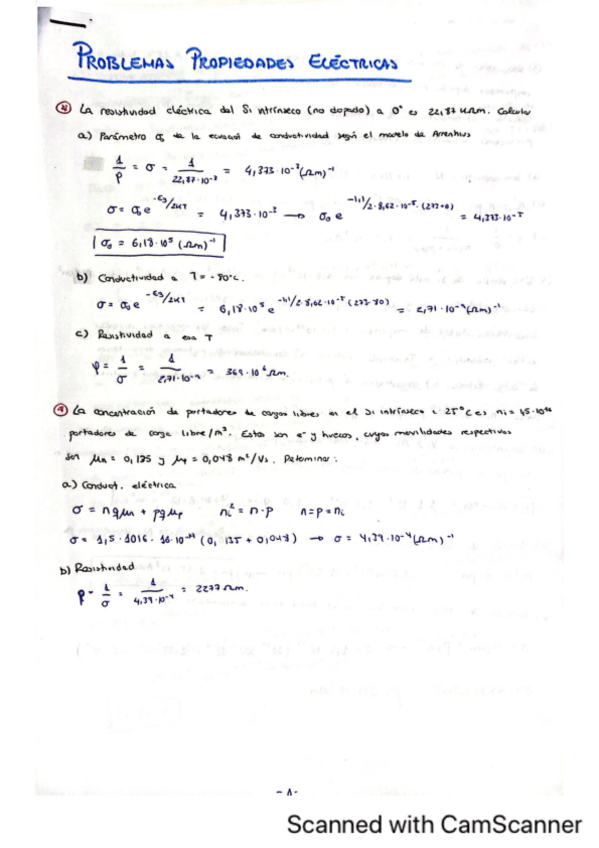 PROBLEMAS PROPIEDADES ELÉCTRICAS
④ La resistividad eléctrica del Si intrínseco (no dopado) a 0° es 22,87 kΩm. Calcula
a) Parámetro σ₀ de la ecuación de conductividad según el modelo de Arrenhius
1/ρ = σ = 1/22,87·10⁻³ = 4,373·10⁻³ (Ωm)⁻¹
σ = σ₀ e^(-Eg/2KT) = 4,373·10⁻⁵ → σ₀ e^(-1,1/2·8,62·10⁻⁵·(273+0)) = 4,373·10⁻⁵
σ₀ = 6,18·10⁵ (Ωm)⁻¹
b) Conductividad a T = -80°C.
σ = σ₀ e^(-Eg/2KT) = 6,18·10⁵ e^(-1,1/2·8,62·10⁻⁵(273-80)) = 2,71·10⁻⁹ (Ωm)⁻¹
c) Resistividad a esa T
ρ = 1/σ = 1/2,71·10⁻⁹ = 369·10⁶ Ωm.
⑨ La concentración de portadores de cargas libres en el Si intrínseco a 25°C es ni = 1,5·10¹⁶
portadores de carga libre/m³. Estos son e⁻ y huecos, cuyas movilidades respectivas
son μn = 0,135 y μp = 0,048 m²/Vs. Determinar:
a) Conduct. eléctrica
σ = nqμn + pqμp ni² = n·p n=p=ni
σ = 1,5·1016·1,6·10⁻¹⁹ (0,135 + 0,048) → σ = 4,39·10⁻⁴ (Ωm)⁻¹
b) Resistividad
ρ = 1/σ = 1/4,39·10⁻⁴ = 2277 Ωm.
-1-
Scanned with CamScanner